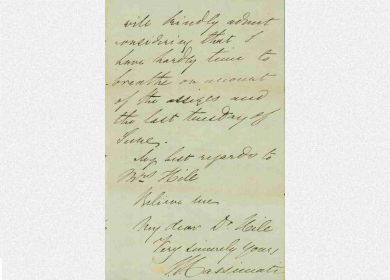 will kindly admit
considering that I
have hardly time to
breathe on account
of the assizes and
the last tuesday of
June.
My best regards to
Mrs Hile
Believe me
My dear Dr Hile
Very sincerely yours